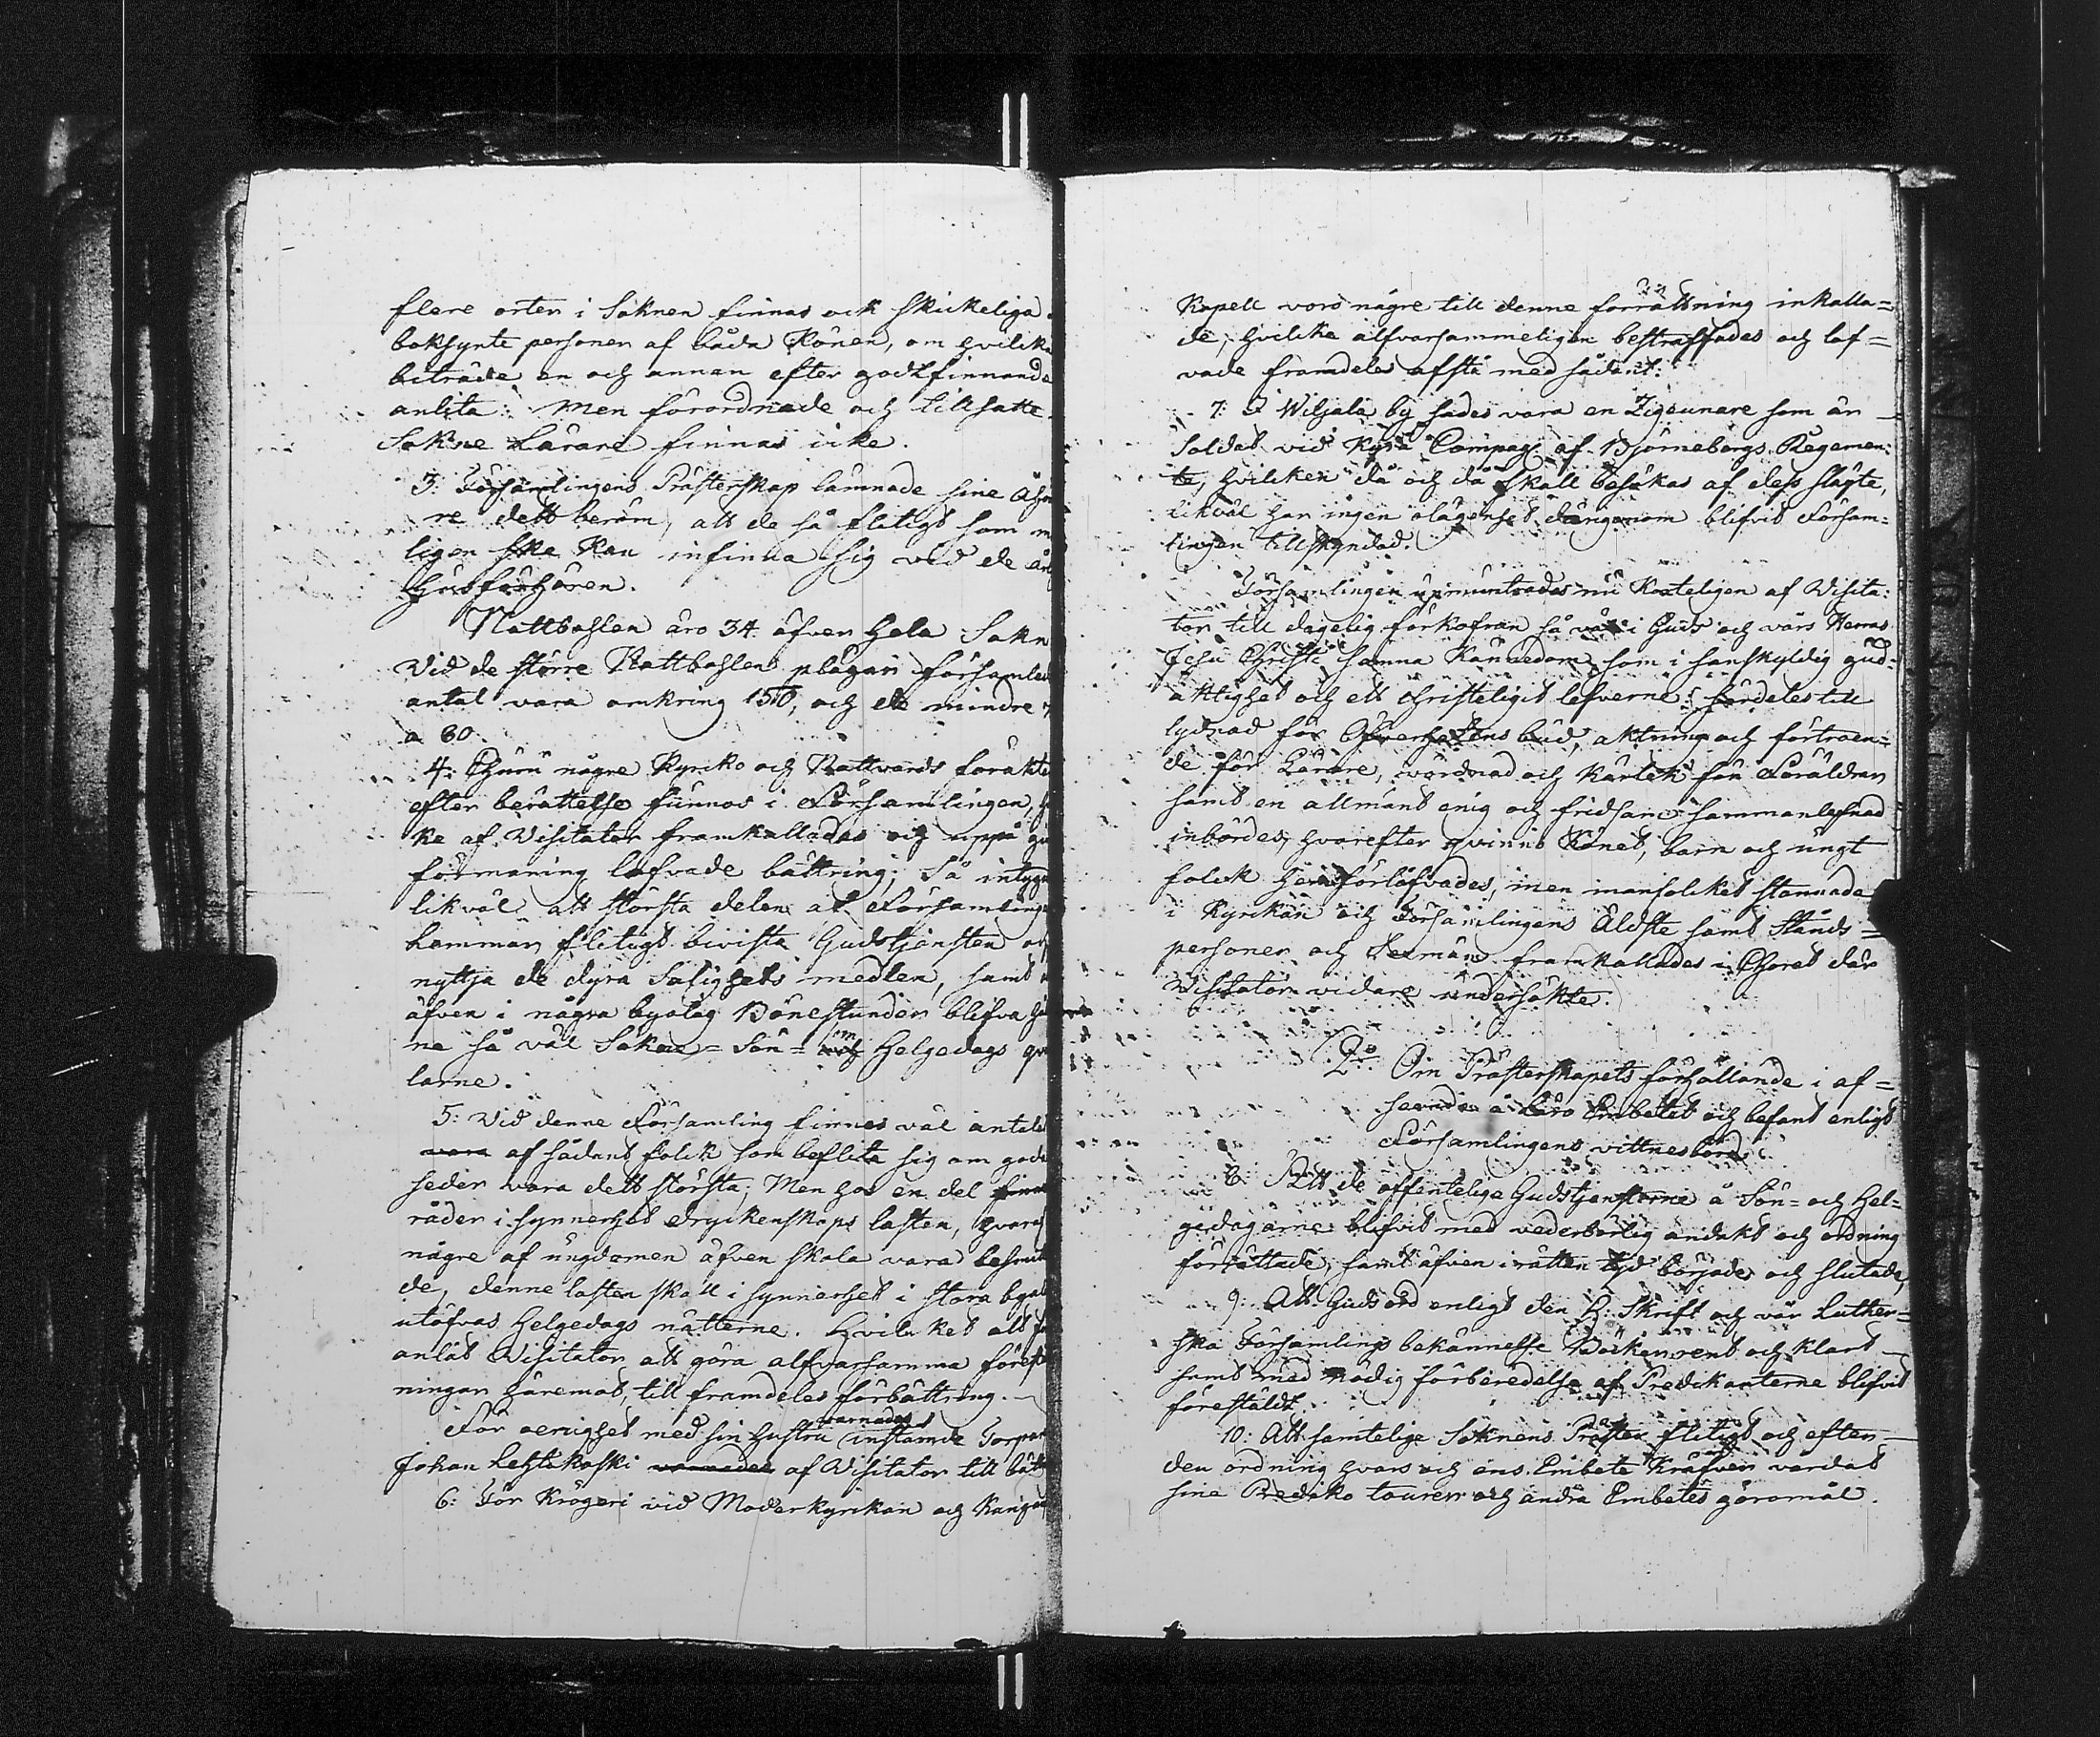 flere orter i Soknen finnas ock skickeliga
boksynte personer af båda Könen, om hvilka
biträde en och annan efter godtfinnande
anlita: Men förordnade och tillsatte
Sokne Lärare finnas icke.
3: Församlingens Prästerskap lämnade sine Åhö
re dett beröm, att de så flitigt som m
ligen ske kan infinna sig vid de år
Husförhören.
Nattbohlen äro 34. öfver hela Sokn
Vid de större Nattbohlen plägar församlin
antal vara omkring 150, och de mindre
a 60.
4: Ehuru någre Kyrko och Nattvards förakta
efter berättelse funnos i Församlingen,
ke af Visitator framkallades och uppå
förmaning lofvade bättring; Så intyga
likväl att största delen af Församlings
hemmar flitigt bivista Gudstjensten
nyttja de dyra Salighets medlen, samt
äfven i några byalag Bönestunder blifva
ne så väl Sokne= Sön= och Helgedags
larne.
5: Vid denne Församling finnes väl antal
vara af sådant folck som beflita sig om goda
seder vara dett största; Men hos en del
råder i synnerhet dryckenskaps lasten, hvaraf
någre af ungdomen äfven skola vara besmit
de, denne lasten skall i synnerhet i stora
utöfvas Helgedags nätterne. Hvilcket alt
anlät Visitator att göra alfvarsamma förest
ningar häremot, till framdeles förbättring.
varnades
För oenighet med sin hustru instämde Torpar
Johan Lehtikoski varnades af Visitator till bätt
6: För Krögeri vid Moderkyrkan och Kang
Kapell voro någre till denne förrättning inkalla=
de, hvilcke alfvarsammeligen bestraffades och lof=
vade framdeles afstå med sådant.
7: I Wiljala by sades vara en Zigeunare som är
Soldat vid Kyrö Compag: af Björneborgs Regemen=
te, hvilcken då och då skall besökas af dess slägte,
likväl har ingen olägenhet därigenom blifvit Försam=
lingen tillskyndad.
Församlingen upmuntrades nu Korteligen af Visita=
tor till dagelig förkofran så väl i Guds och vårs Herras
Jesu Christi sanna Kännedom som i sanskyldig gud=
aktighet och ett christeligit lefverne: särdeles till
lydnad för Öfverhetens bud, aktning och förtroen=
de för Lärare, wördnad och kärlek för Föräldrar
samt en allmänt enig och fridsam sammanlefnad
inbördes, hvarefter qvinno Könet, barn och ungt
folck hemförlofvades, men manfolcket stannade
i Kyrkan och Församlingens Äldste samt Stånds=
personer och Sexmän framkallades i Choret där
Visitator vidare undersökte:
2:o Om Prästerskapets förhållande i af=
seende å Läro Embetet och befant enligt
Församlingens vittnesbörd.
8: Att de offentelige Gudstjensterne å Sön- och Hel=
gedagarne blifvit med vederbörlig andakt och ordning
förrättade, samt äfven i rättan tyd började och slutade,
9: Att Guds ord enligt den H: Skrift och vår Luther=
ska Församlings bekännelse Böcker rent och klart
samt med nödig förberedelse af Predikanterne blifvit
förestäldt.
10: Att samtelige Soknens Präster flitigt och efter
den ordning hvars och ens Embete Kräfver vårdat
sine Prediko tourer och andra Embetes göromål.